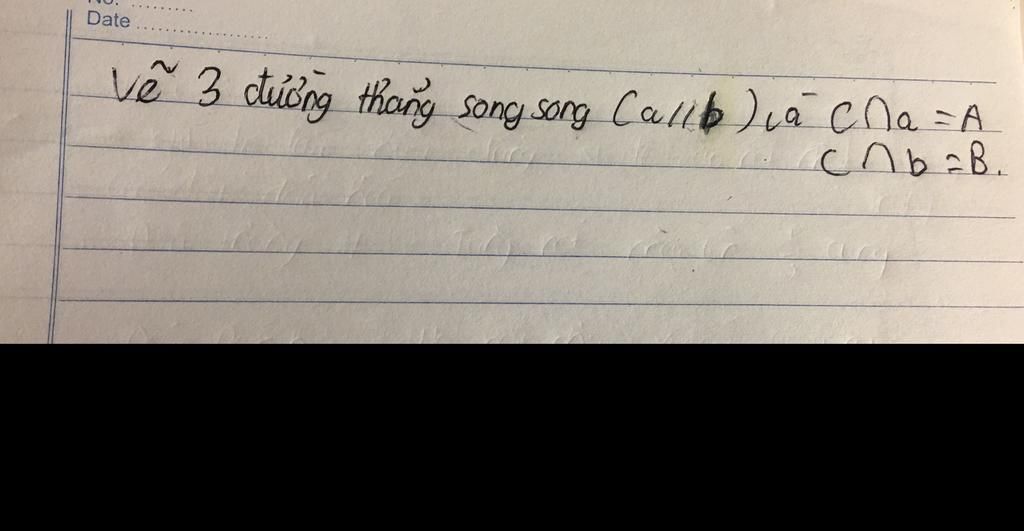 No. ..........
Date ....................
Vẽ 3 đường thẳng song song (a//b) và C∩a = A
C∩b = B.